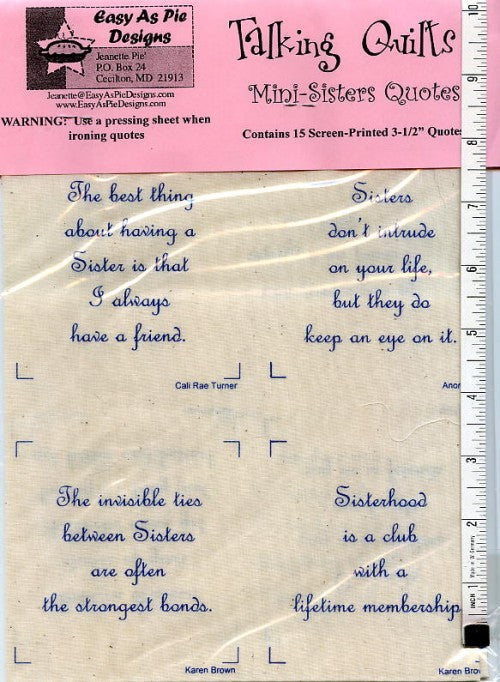 Easy As Pie
Designs
Jeannette Pie'
P.O. Box 24
Cecilton, MD 21913
Jeanette@EasyAsPieDesigns.com
www.EasyAsPieDesigns.com
WARNING: Use a pressing sheet when
ironing quotes
Talking Quilts
Mini-Sisters Quotes
Contains 15 Screen-Printed 3-1/2" Quotes
The best thing
about having a
Sister is that
I always
have a friend.
Cali Rae Turner
Sisters
don't intrude
on your life,
but they do
keep an eye on it.
Anon
The invisible ties
between Sisters
are often
the strongest bonds.
Karen Brown
Sisterhood
is a club
with a
lifetime membership
Karen Bro
10
9
8
7
6
5
4
3
2
1
INCH
Made in W. Germany